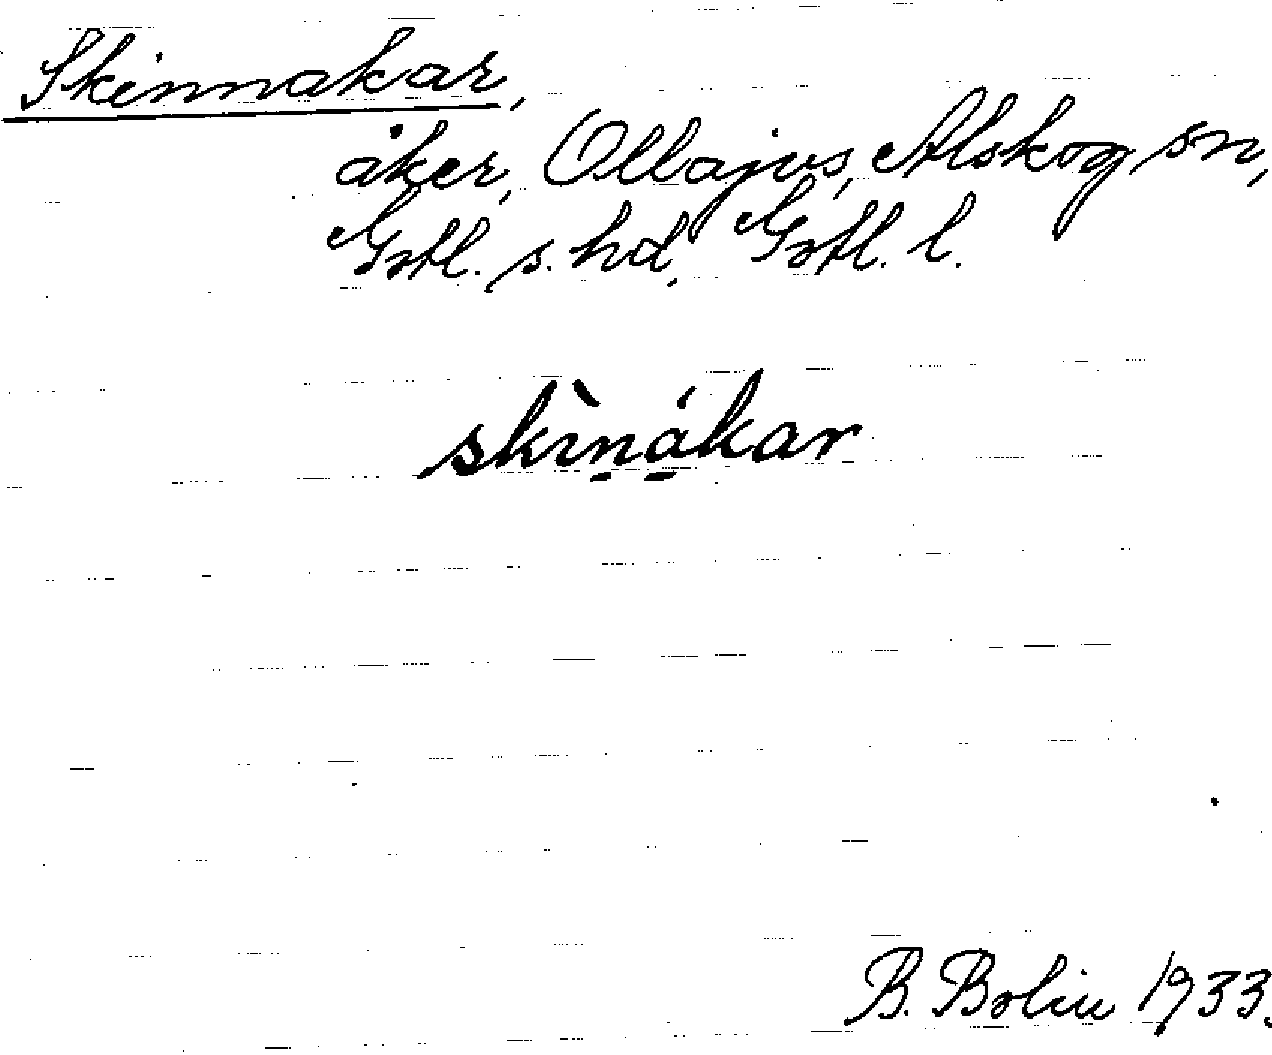 Skinnakar,
åker, Ollajvs, Alskog sn,
Gotl. s. hd, Gotl. l.
skìn̠á̠kar
B. Bolin 1933.